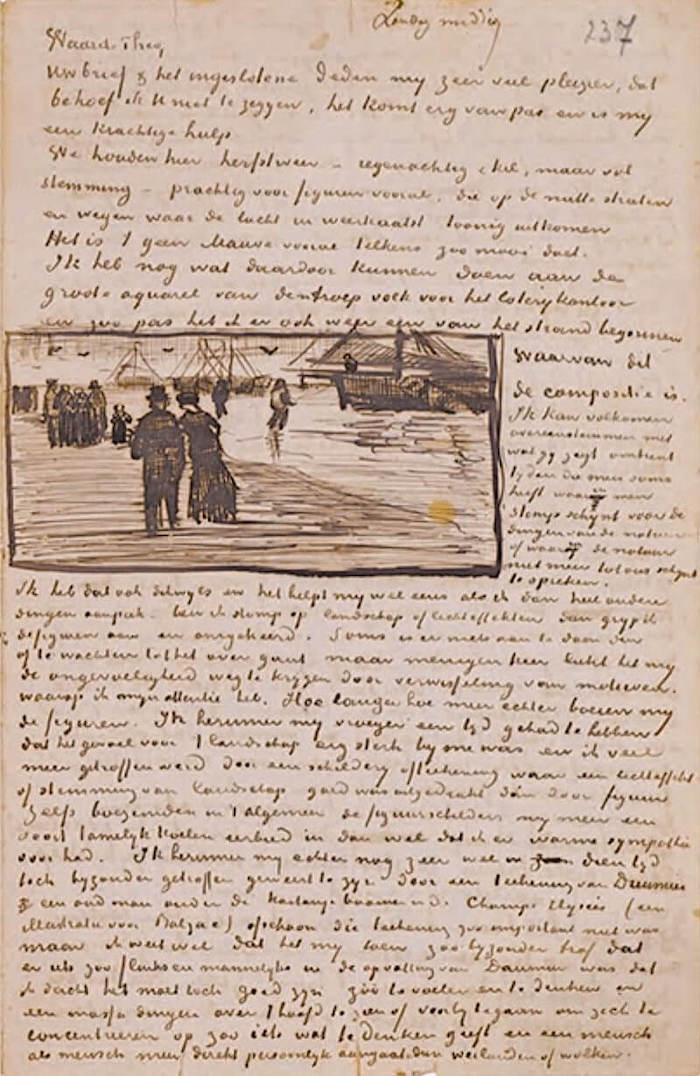 Zondag middag
237
Waarde Theo,
Uw brief & het ingeslotene deden my zeer veel pleizier, dat
behoef ik U niet te zeggen, het komt erg van pas en is my
een krachtige hulp.
We houden hier herfstweer – regenachtig & kil, maar vol
stemming – prachtig voor figuren vooral, die op de natte straten
en wegen waar de lucht in weerkaatst toonig uitkomen
Het is 't geen Mauve vooral telkens zoo mooi doet.
Ik heb nog wat daardoor kunnen doen aan de
groote aquarel van den troep volk voor het loterykantoor
en zoo pas heb ik er ook weer een van het strand begonnen
Waarvan dit
de compositie is.
Ik kan volkomen
overeenstemmen met
wat gy zegt omtrent
tyden die men soms
heeft waarin men
stomp schynt voor de
dingen van de natuur
of waarin de natuur
niet meer tot ons schynt
te spreken.
Ik heb dat ook dikwyls en het helpt my wel eens als ik dan heel andere
dingen aanpak – ben ik stomp op landschap of lichteffekten dan gryp ik
de figuren aan en omgekeerd. Soms is er niets aan te doen dan
af te wachten tot het over gaat maar menigen keer lukt het my
de ongevoeligheid weg te krygen door verwisseling van motieven
waarop ik myn attentie heb. Hoe langer hoe meer echter boeien my
de figuren. Ik herinner my vroeger een tyd gehad te hebben
dat het gevoel voor 't landschap erg sterk by me was en ik veel
meer getroffen werd door een schildery of teekening waar een lichteffekt
of stemming van landschap goed was uitgedrukt dan door figuur
Zelfs boezemden in 't algemeen de figuurschilders my meer een
soort tamelyk koelen eerbied in dan wel dat ik er warme sympathie
voor had. Ik herinner my echter nog zeer wel in dien tyd
toch byzonder getroffen geweest te zyn door een teekening van Daumier
een oud man onder de kastanjeboomen in d. Champs Elysées (een
illustratie voor Balzac) ofschoon die teekening zoo important niet was
maar ik weet wel dat het my toen zoo byzonder trof dat
er iets zoo flinks en mannelyks in de opvatting van Daumier was dat
ik dacht het moet toch goed zyn zóó te voelen en te denken en
een massa dingen over 't hoofd te zien of voorby te gaan om zich te
concentreeren op zoo iets wat te denken geeft en een mensch
als mensch meer direkt persoonlyk aangaat dan weilanden of wolken.